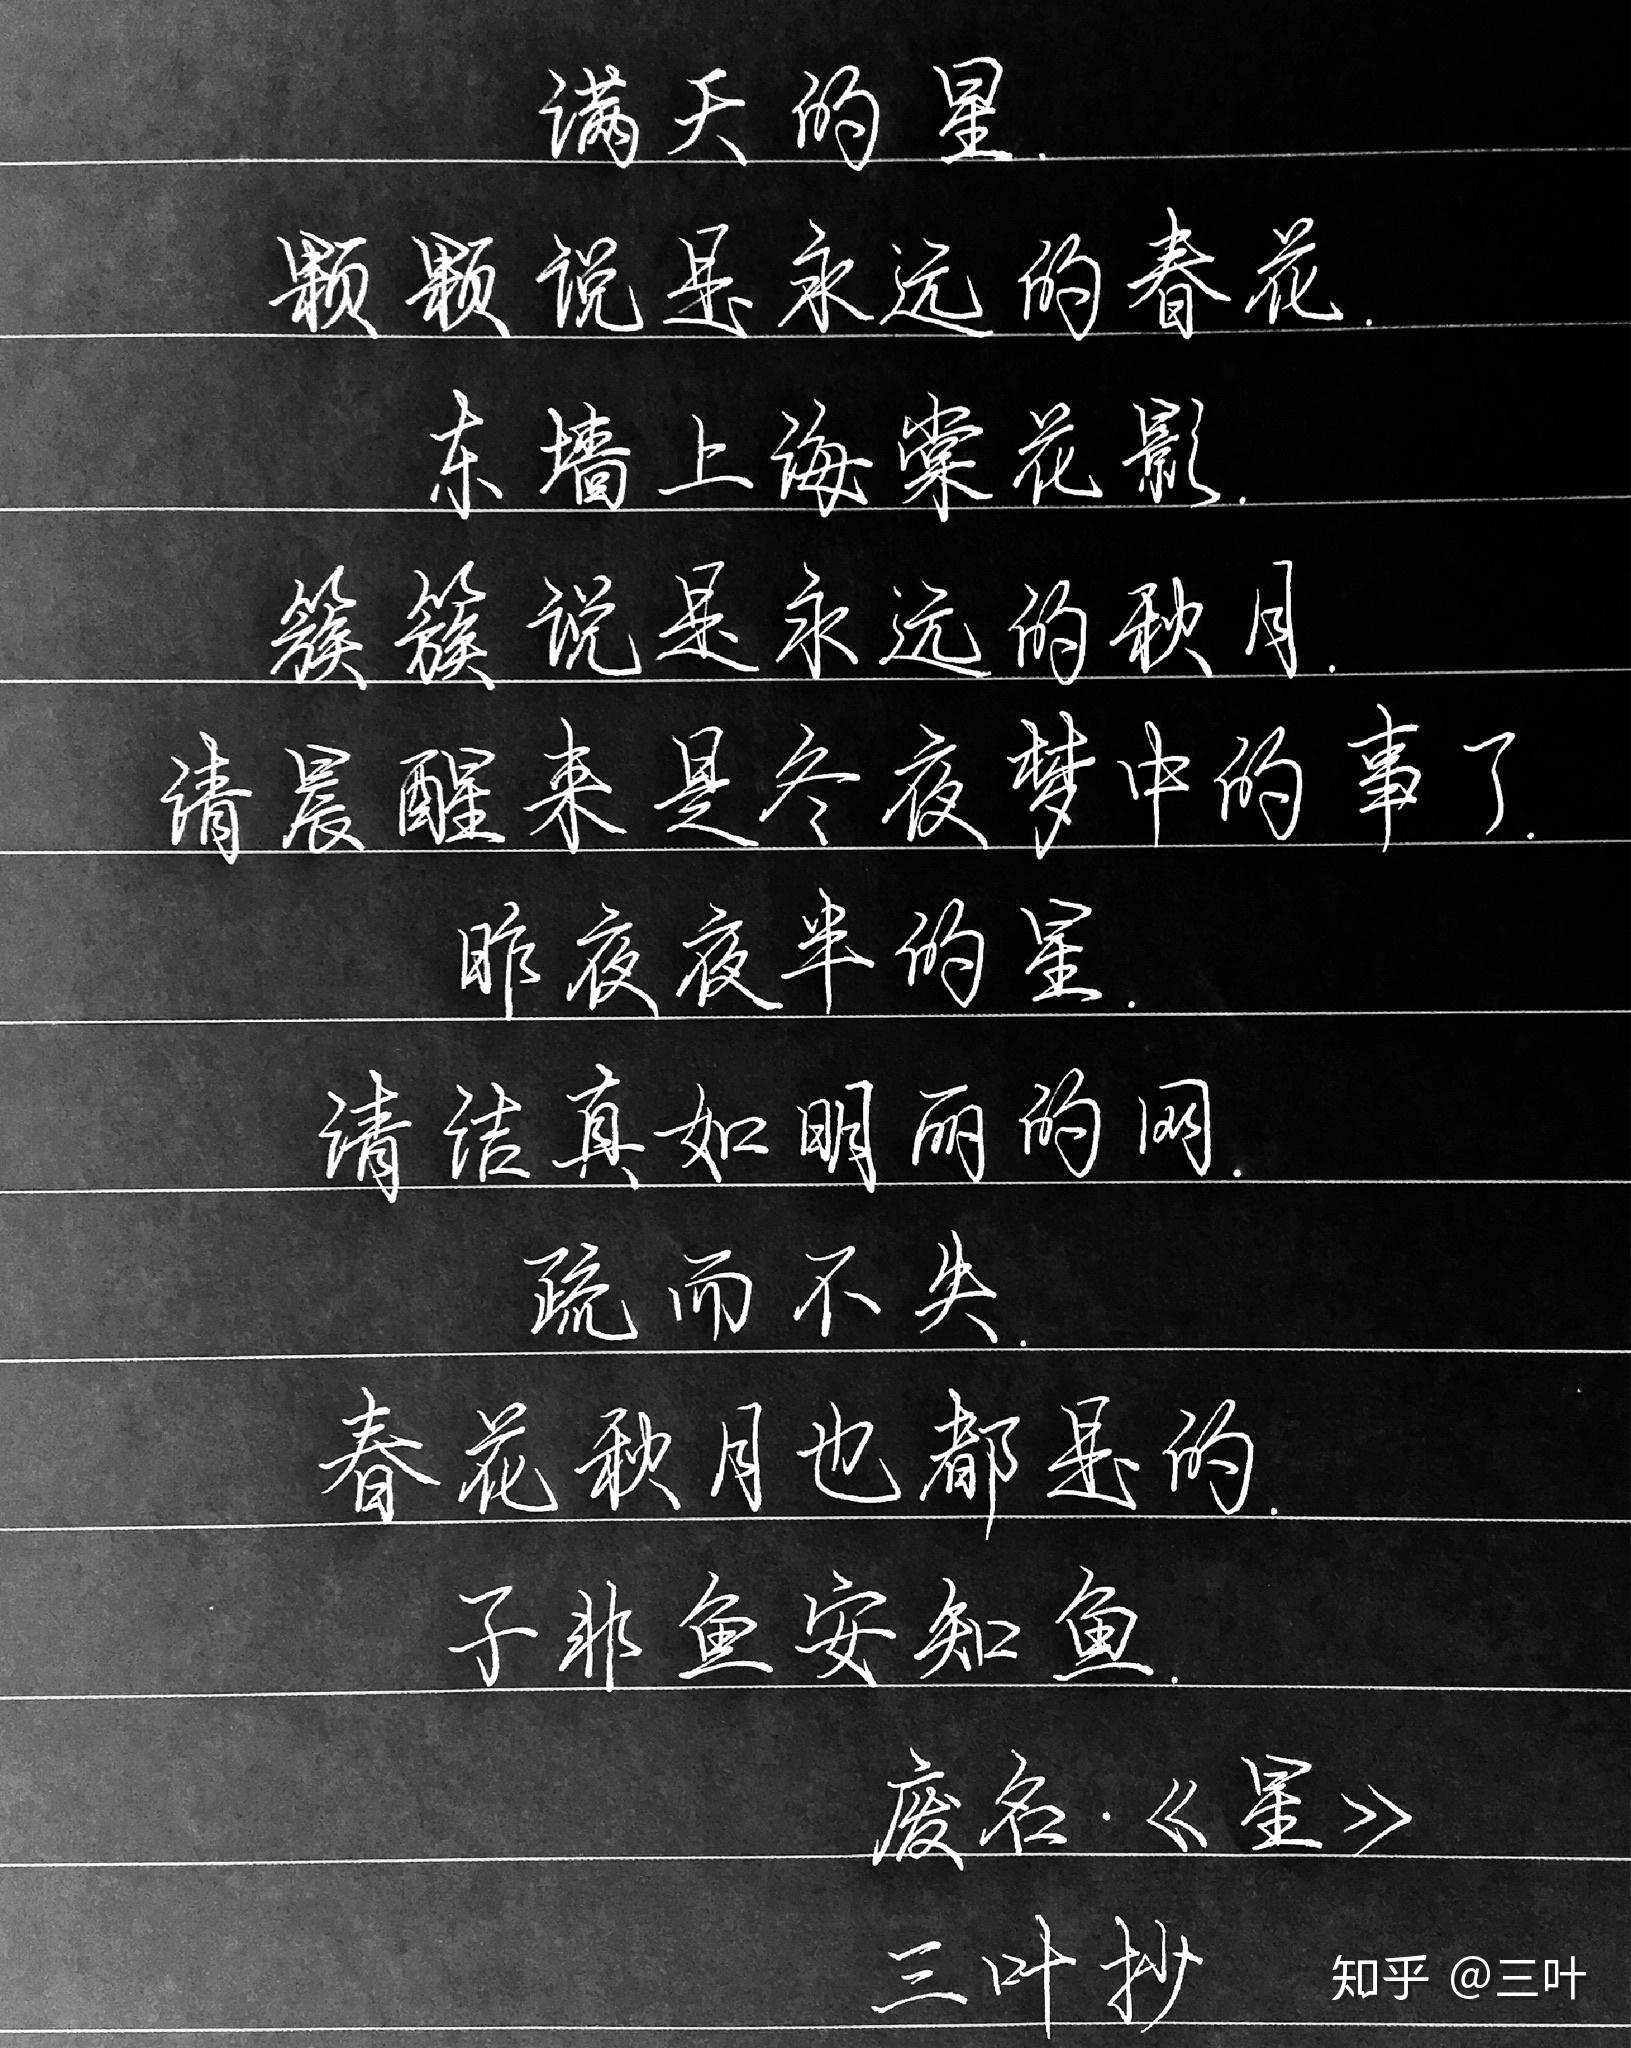 满天的星.
颗颗说是永远的春花.
东墙上海棠花影.
簇簇说是永远的秋月.
清晨醒来是冬夜梦中的事了.
昨夜夜半的星.
清洁真如明丽的网.
疏而不失.
春花秋月也都是的.
子非鱼安知鱼.
废名·《星》
三叶抄
知乎 @三叶